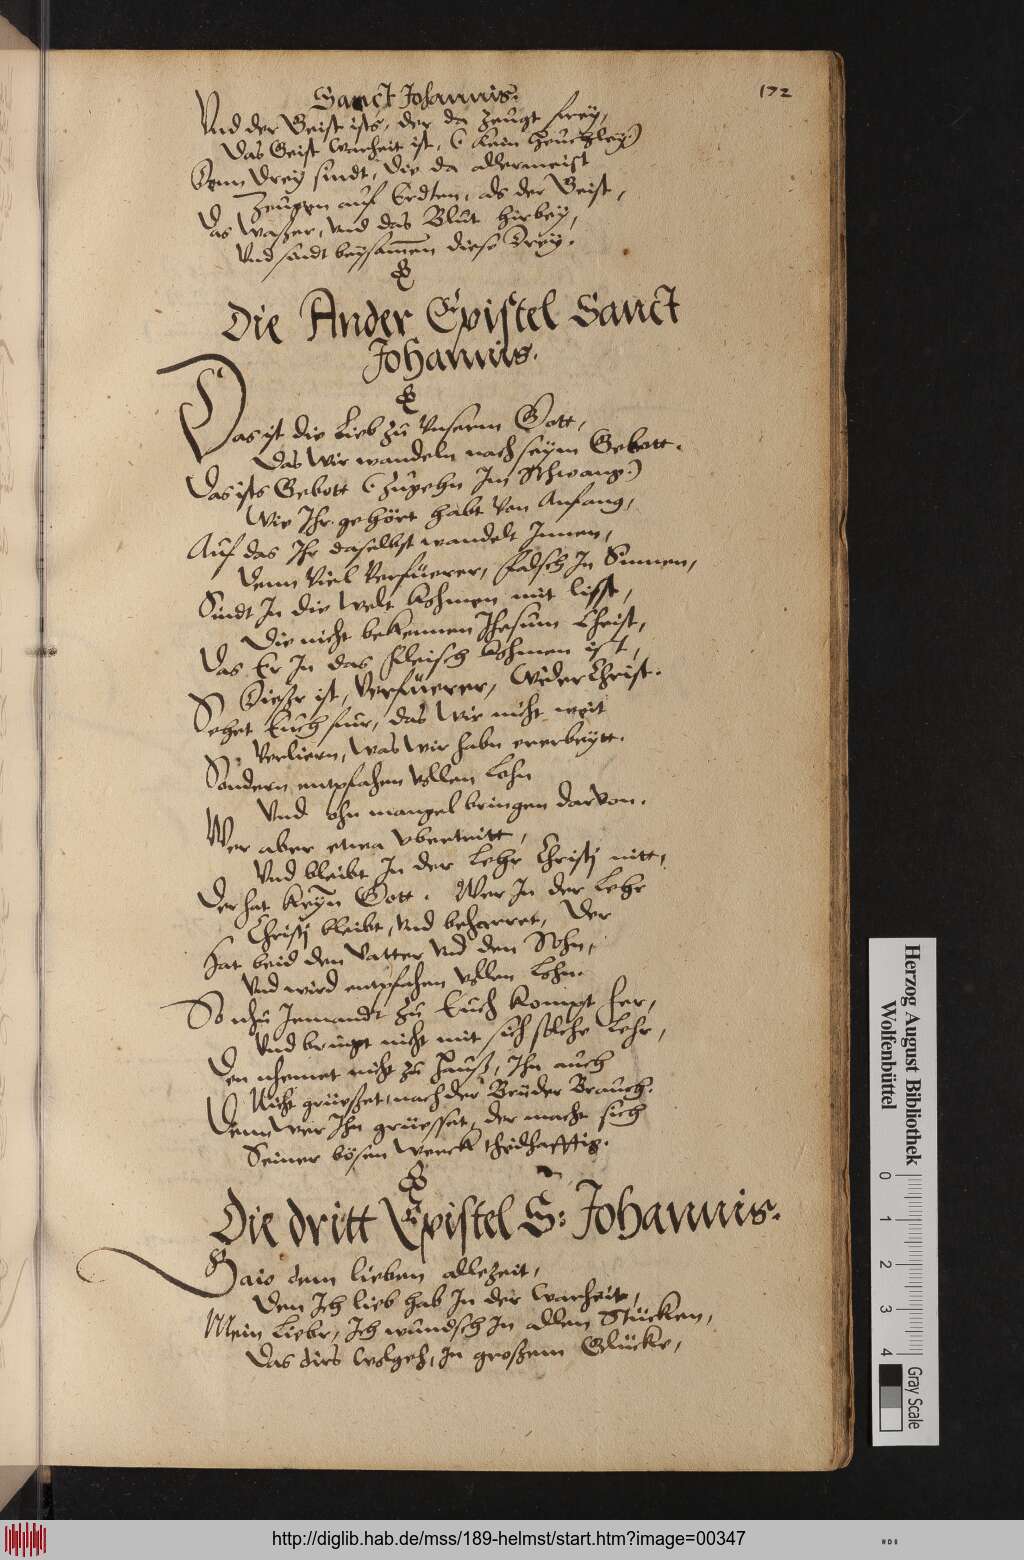 Sanct Johannis. 172
Vnd der Geist ists, der da zeugt frey,
Das Geist Warheit ist, (Kain heuchley)
Denn drey sindt, die da allermeist
Zeugen auf Erdten, als der Geist,
Das Waßer, vnd das Blut hirbey,
Vnd sindt beysammen diese drey.
Die Ander Epistel Sanct
Johannis.
Das ist die Lieb zu Vnserm Gott,
Das Wir wandeln nach seym Gebott.
Das ists Gebott (zugehn Im Schwang)
Wie Ihr gehört habt Von Anfang,
Auf das Ihr daselbst wandelt Innen,
Denn Viel Verfüerer, falsch In Sinnen,
Sindt In die Welt Kohmen mit list,
Die nicht bekennen Jhesum Christ,
Das Er In das fleisch Kohmen ist,
Dieser ist, Verfüerer, WiderChrist.
Sehet Euch fuur, das Wir nicht weit
Verliern, Was Wir habn ererbeytt.
Sondern entpfahen Vollen Lohn
Vnd ohn mangel bringen darvon.
Wer aber etwa vbertritt,
Vnd bleibt In der Lehr Christj nitt,
Der hat Keyn Gott. Wer In der Lehr
Christj bleibt, vnd beharret, Der
Hat beid den Vatter vnd den Sohn,
Vnd wird entpfahen Vollen Lohn.
So nhu Jemandt zu Euch Kompt her,
Vnd bringt nicht mit sich solche Lehr,
Den nhemet nicht zu Hauß, Ihn auch
Nicht grüeßet, nach der Brüder Brauch.
Denn Wer Ihn grüesset, der macht sich
Seiner bösen Werck theilhafftig.
Die dritt Epistel S: Johannis.
Gaio dem lieben allezeit,
Den Ich lieb hab In der Warheit,
Mein Lieber, Ich wundsch In allen Stücken,
Das dirs Wolgeh, In großem Glücke,
Herzog August Bibliothek
Wolfenbüttel
0 1 2 3 4
Gray Scale
http://diglib.hab.de/mss/189-helmst/start.htm?image=00347